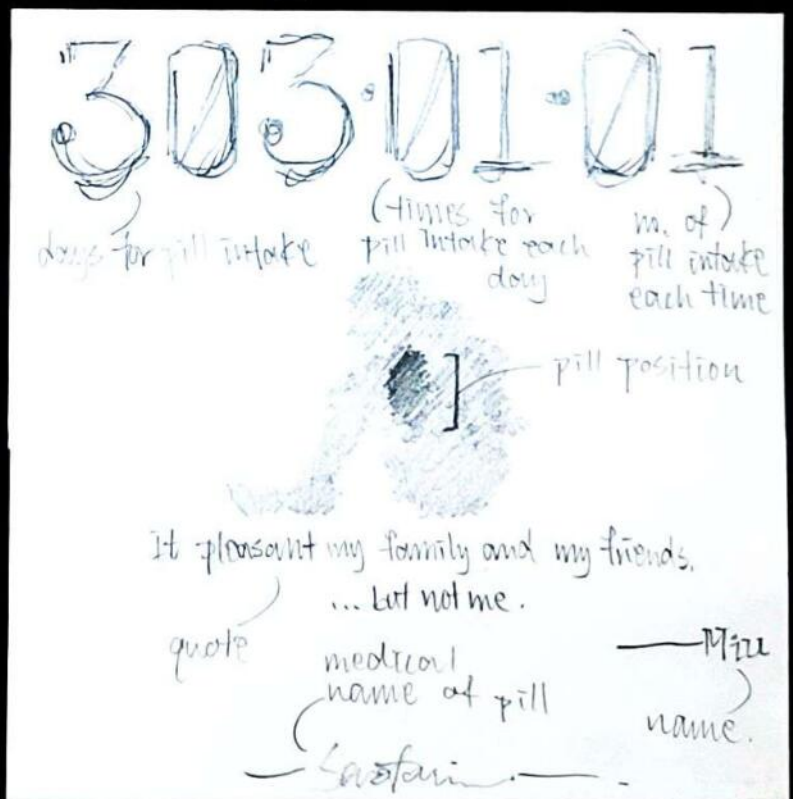 303·01·01
days for pill intake
(times for
pill intake each
day
no. of)
pill intake
each time
pill position
It pleasant my family and my friends.
... but not me.
quote
medical
name of pill
name.